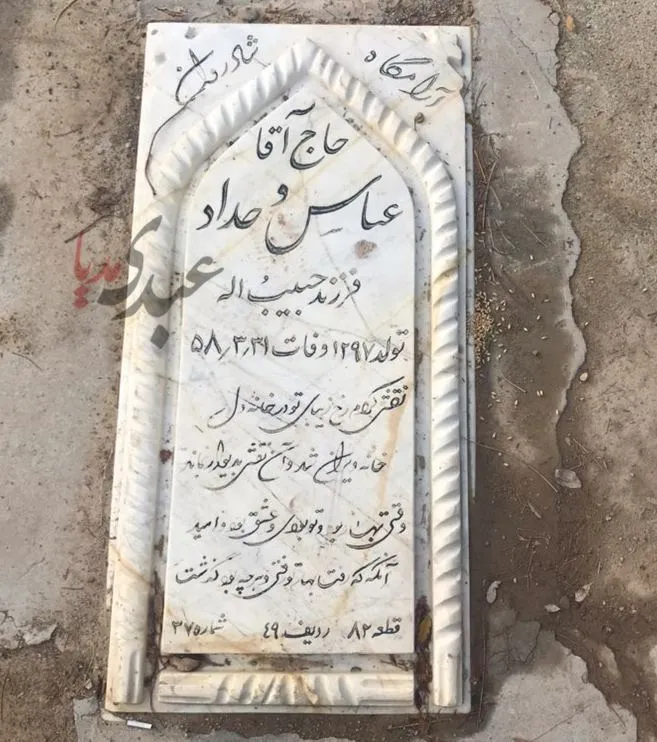 آرامگاه شادروان
حاج آقا
عباس حداد
فرزند حبیب اله
تولد ۱۲۹۷ وفات ۵۸٫۳٫۳۱
نقشی کردم رخ زیبای تو در خانه دل
خانه ویران شد و آن نقش بدیوار بماند
وقتی تو بودی و عشق بود و امید
آنگه که رفت و هر چه بود گذشت
قطعه ۸۲ ردیف ۴۹ شماره ۳۷
عبدی مدیا